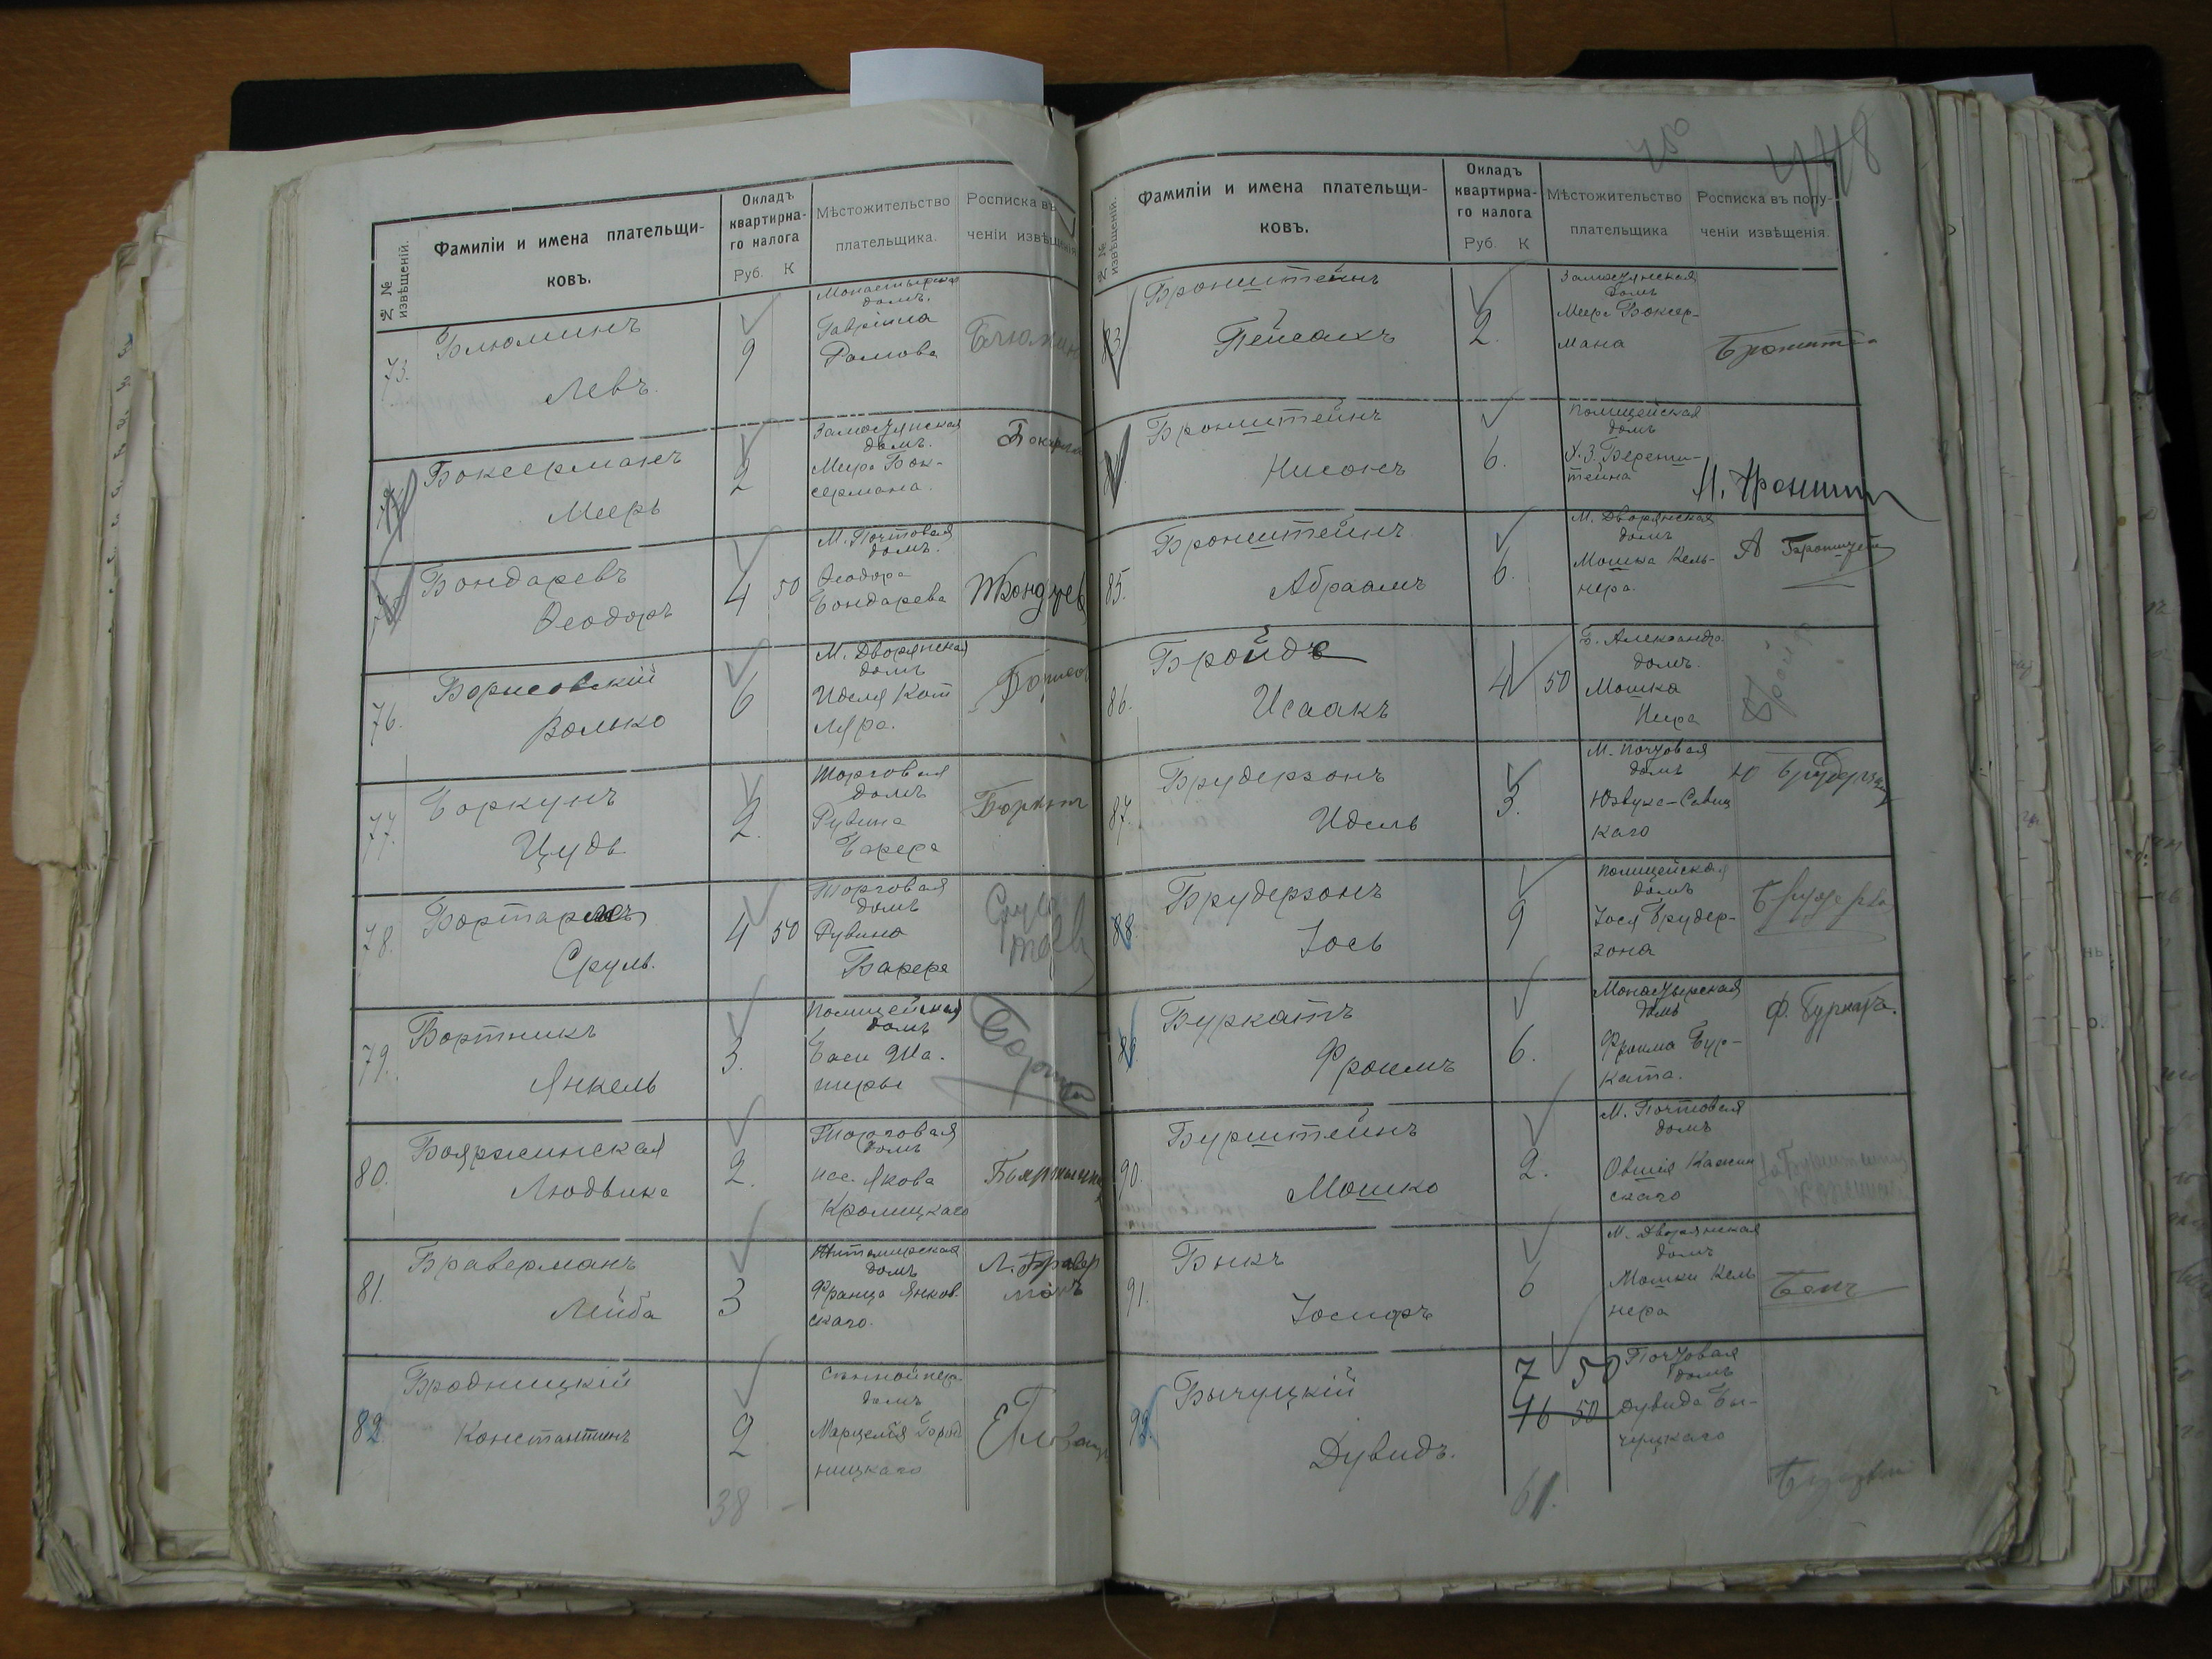 №№ извѣщеній.
Фамиліи и имена плательщи-
ковъ.
Окладъ
квартирна-
го налога
Руб. К
Мѣстожительство
плательщика.
Росписка въ
ченіи извѣщенія
73.
Блюминъ
Левъ.
9
Монастырская
домъ.
Гавріила
Рамова
Боксерманъ
Мееръ
2
Замостянская
домъ.
Меера Бок-
сермана.
Бондаревъ
Ѳеодоръ
4 50
М. Почтовая
домъ.
Ѳеодора
Бондарева
76.
Борисовскій
Волько
6
М. Дворянская
домъ
Иделя Кот
ляра.
77.
Боркунъ
Цудь
2.
Торговая
домъ
Рувина
Барера
Боркун
78.
Сруль.
4 50
Торговая
домъ
Рувина
Барера
79.
Бортникъ
Янкель
3.
Полицейская
домъ
Баси Ша-
пиры
80.
Бояржинская
Людвика
2.
Торговая
домъ
нас. Якова
Кролицкаго
81.
Браверманъ
Лейба
3
Житомирская
домъ
Франца Янков.
скаго.
Л. Бравер
манъ
82.
Бродницкій
Константинъ
2
домъ
ницкаго
38 -
450
448
№ №
извѣщеній.
Фамиліи и имена плательщи-
ковъ.
Окладъ
квартирна-
го налога
Руб. К
Мѣстожительство
плательщика
Росписка въ полу-
ченіи извѣщенія.
83
Бронштейнъ
Пейсахъ
2.
Замостянская
домъ
Меера Боксер-
мана
Бронштейнъ
Нисонъ
6.
Полицейская
домъ
Х.З. Беренш-
тейна
85.
Бронштейнъ
Абраамъ
6.
М. Дворянская
домъ
Мошка Кель-
нера.
А Бронштейн
86.
Бройде
Исаакъ
4 50
Б. Александр.
домъ.
Мошка
Пира
Бройд
87.
Брудерзонъ
Идель
3.
М. Почтовая
домъ
Юзвука-Савиц
каго
88.
Брудерзонъ
Іось
9
Полицейская
домъ
Іося Брудер-
зона
Буркатъ
Фроимъ
6.
Монастырская
домъ
Фроима Бур-
ката.
Ф. Буркатъ.
90.
Бурштейнъ
Мошко
2.
М. Почтовая
домъ
Овшія Кажин
скаго
91.
Быкъ
Іосифъ
6
М. Дворянская
домъ
Мошки Кель
нера
92.
Бычуцкій
Дувидъ.
7 50
16 50
Почтовая
домъ
Дувида Бы-
чуцкаго
61.